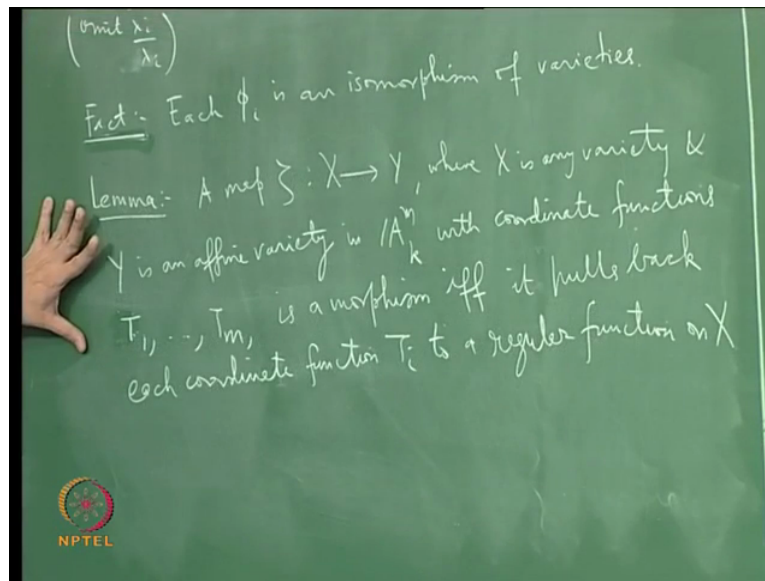 (omit λi/λi)
Fact:- Each ϕi is an isomorphism of varieties.
Lemma:- A map ζ : X → Y, where X is any variety &
Y is an affine variety in /A^m_k with coordinate functions
T1, ..., Tm, is a morphism iff it pulls back
each coordinate function Ti to a regular function on X
NPTEL